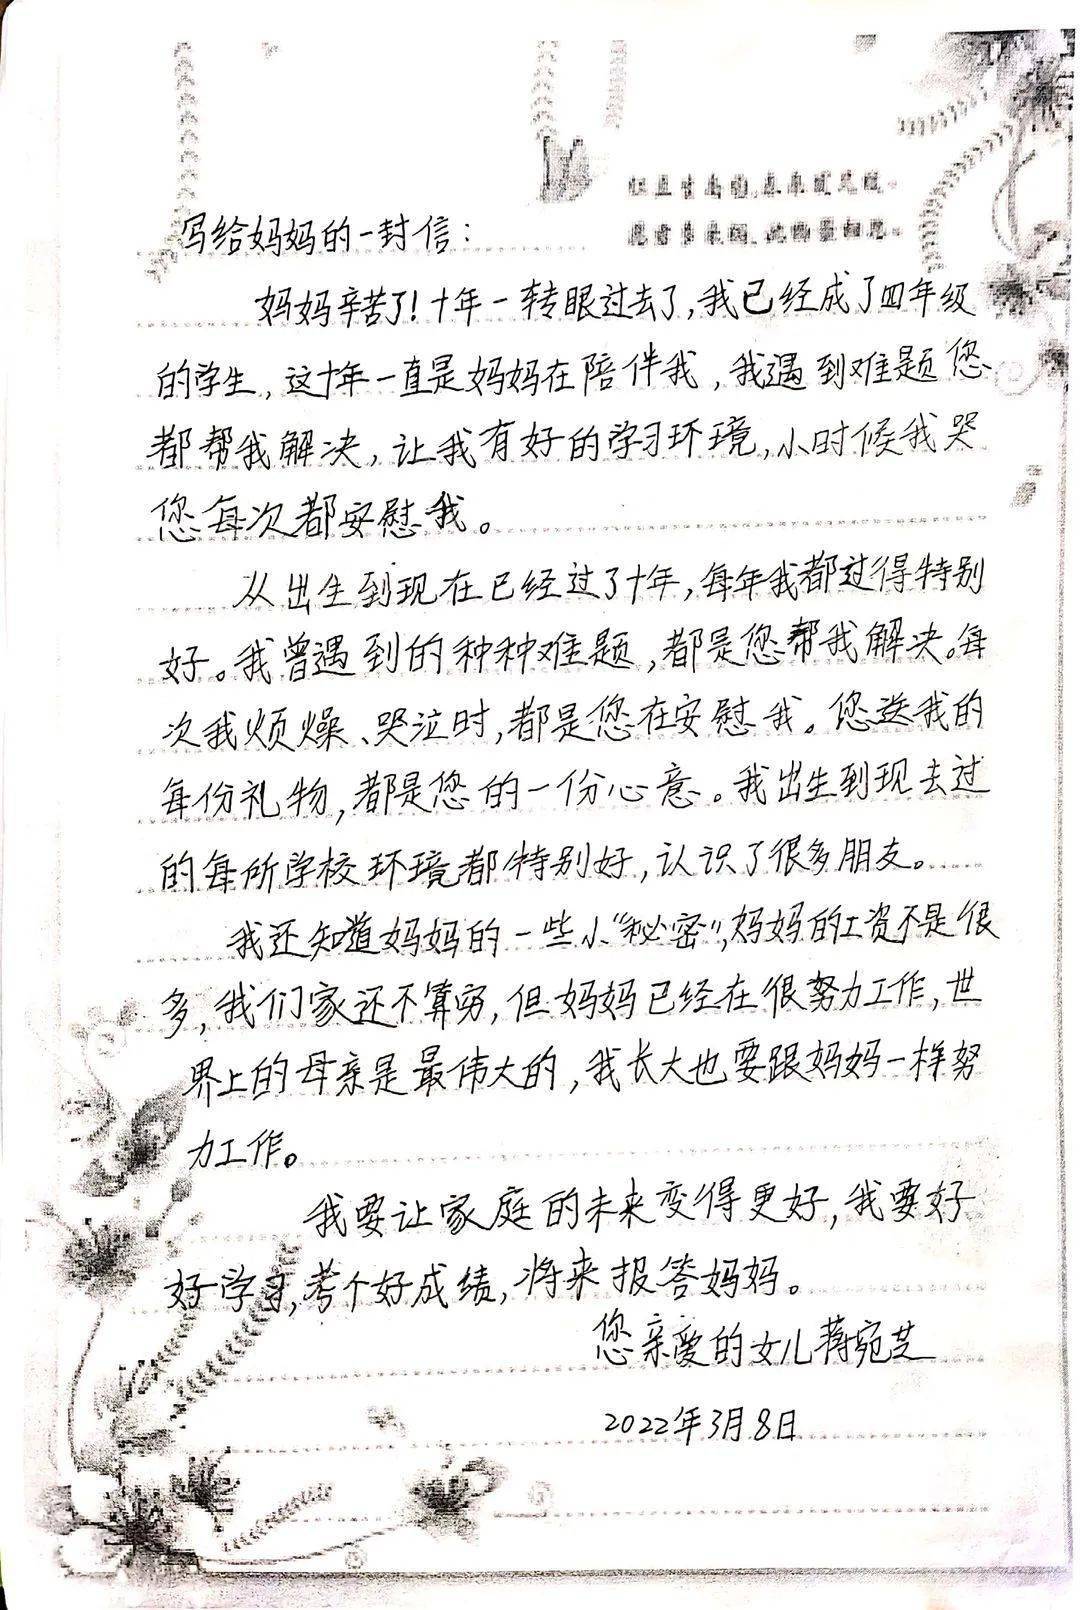 写给妈妈的一封信：
妈妈辛苦了！十年一转眼过去了，我已经成了四年级
的学生，这十年一直是妈妈在陪伴我，我遇到难题您
都帮我解决，让我有好的学习环境，小时候我哭
您每次都安慰我。
从出生到现在已经过了十年，每年我都过得特别
好。我曾遇到的种种难题，都是您帮我解决。每
次我烦燥、哭泣时，都是您在安慰我。您送我的
每份礼物，都是您的一份心意。我出生到现去过
的每所学校环境都特别好，认识了很多朋友。
我还知道妈妈的一些小“秘密”，妈妈的工资不是很
多，我们家还不算穷，但妈妈已经在很努力工作，世
界上的母亲是最伟大的，我长大也要跟妈妈一样努
力工作。
我要让家庭的未来变得更好，我要好
好学习，考个好成绩，将来报答妈妈。
您亲爱的女儿蒋宛芝
2022年3月8日